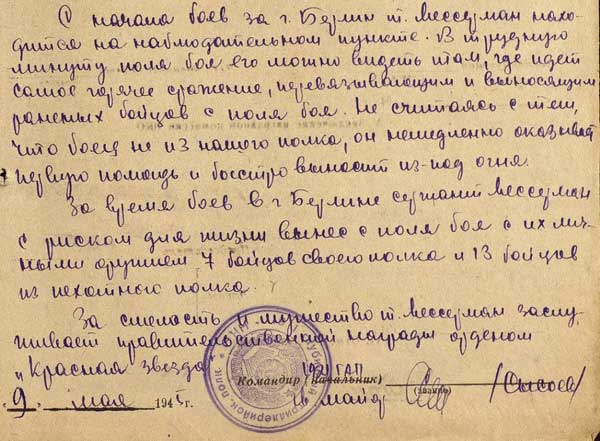 С начала боев за г. Берлин т. Мессерман нахо-
дится на наблюдательном пункте. В трудную
минуту поля боя его можно видеть там, где идет
самое горячее сражение, перевязывающим и выносящим
раненых бойцов с поля боя. Не считаясь с тем,
что боец не из нашего полка, он немедленно оказывает
первую помощь и быстро выносит из-под огня.
За время боев в г. Берлине сержант Мессерман
с риском для жизни вынес с поля боя с их лич-
ными оружием 7 бойцов своего полка и 13 бойцов
из пехотного полка.
За смелость и мужество т. Мессерман заслу-
живает правительственной награды орденом
"Красная звезда"
Командир (начальник) ГАП
(звание)
майор /Сысоев/
"9" мая 1945 г.